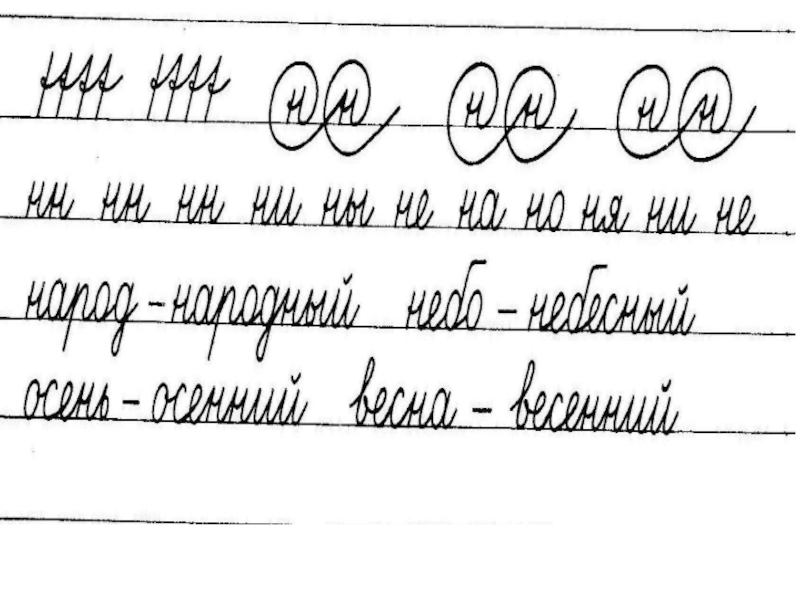 н н н н н н
нн нн нн ни ны не на но ня ни не
народ – народный небо – небесный
осень – осенний весна – весенний